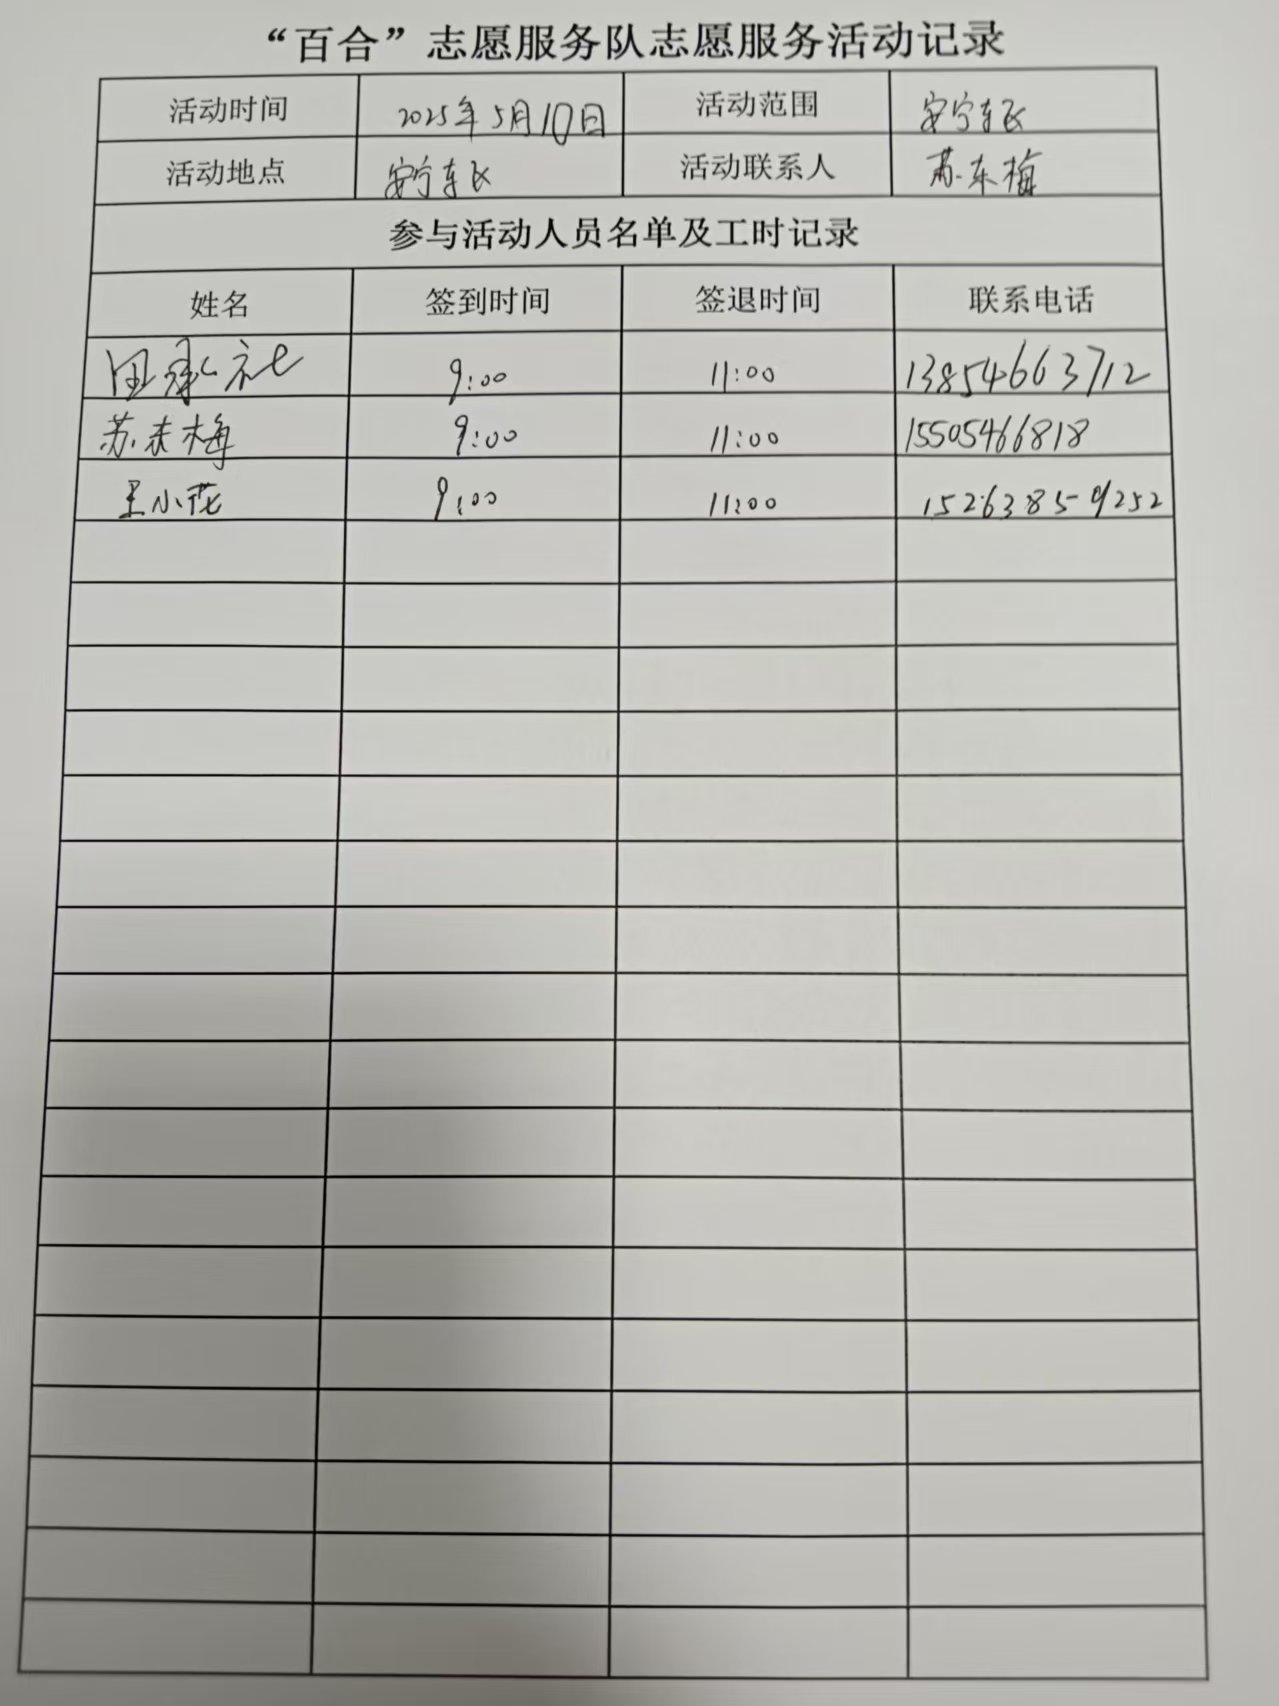 “百合”志愿服务队志愿服务活动记录
活动时间 2025年5月10日 活动范围 安宁东区
活动地点 安宁东区 活动联系人 苏东梅
参与活动人员名单及工时记录
姓名 签到时间 签退时间 联系电话
田 9:00 11:00 13854663712
苏东梅 9:00 11:00 15505466818
王小花 9:00 11:00 15263859252